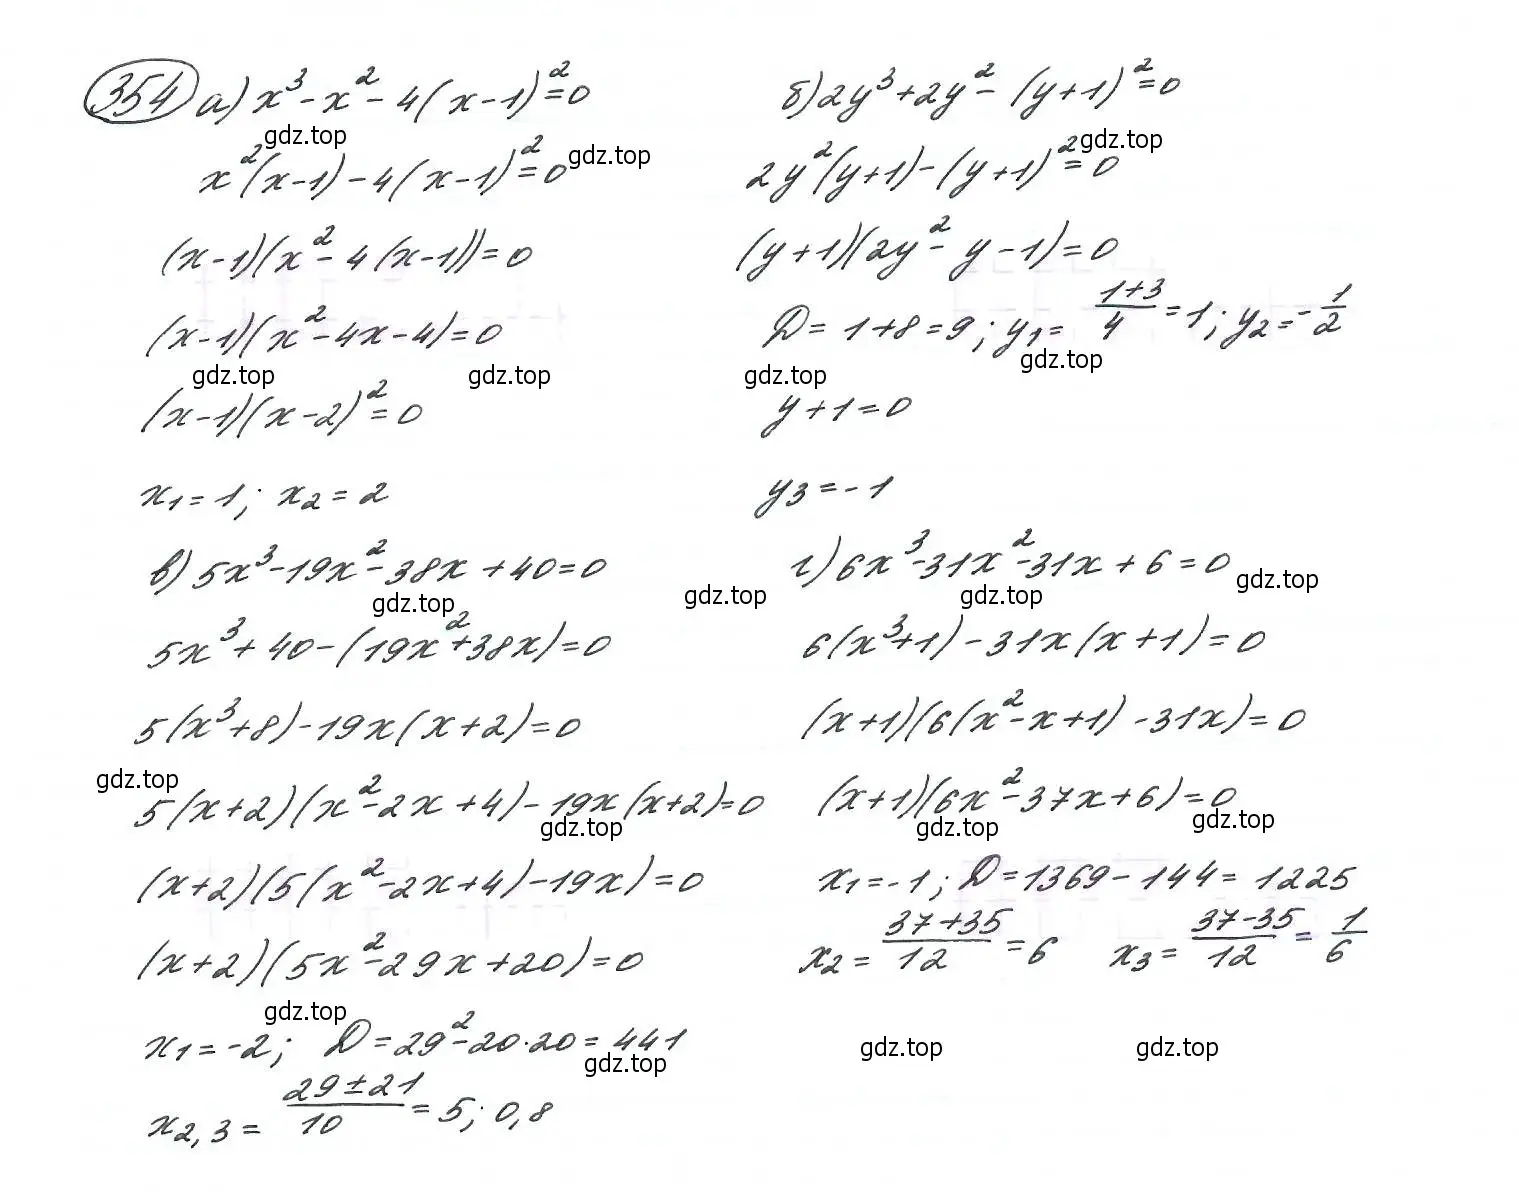 354 а) x³ - x² - 4(x-1)² = 0
gdz.top
x²(x-1) - 4(x-1)² = 0
gdz.top
(x-1)(x² - 4(x-1)) = 0
(x-1)(x² - 4x - 4) = 0
gdz.top gdz.top
(x-1)(x-2)² = 0
x₁ = 1; x₂ = 2
б) 2y³ + 2y² - (y+1)² = 0
gdz.top
2y²(y+1) - (y+1)² = 0
(y+1)(2y² - y - 1) = 0
D = 1+8 = 9; y₁ = (1+3)/4 = 1; y₂ = -1/2
gdz.top
gdz.top
y+1 = 0
y₃ = -1
в) 5x³ - 19x² - 38x + 40 = 0
gdz.top gdz.top
5x³ + 40 - (19x² + 38x) = 0
5(x³+8) - 19x(x+2) = 0
gdz.top
5(x+2)(x² - 2x + 4) - 19x(x+2) = 0
gdz.top
(x+2)(5(x² - 2x + 4) - 19x) = 0
(x+2)(5x² - 29x + 20) = 0
gdz.top
x₁ = -2; D = 29² - 20·20 = 441
gdz.top
x₂,₃ = (29±21)/10 = 5; 0,8
г) 6x³ - 31x² - 31x + 6 = 0
gdz.top gdz.top
6(x³+1) - 31x(x+1) = 0
(x+1)(6(x² - x + 1) - 31x) = 0
(x+1)(6x² - 37x + 6) = 0
gdz.top gdz.top
x₁ = -1; D = 1369 - 144 = 1225
x₂ = (37+35)/12 = 6 x₃ = (37-35)/12 = 1/6
gdz.top gdz.top